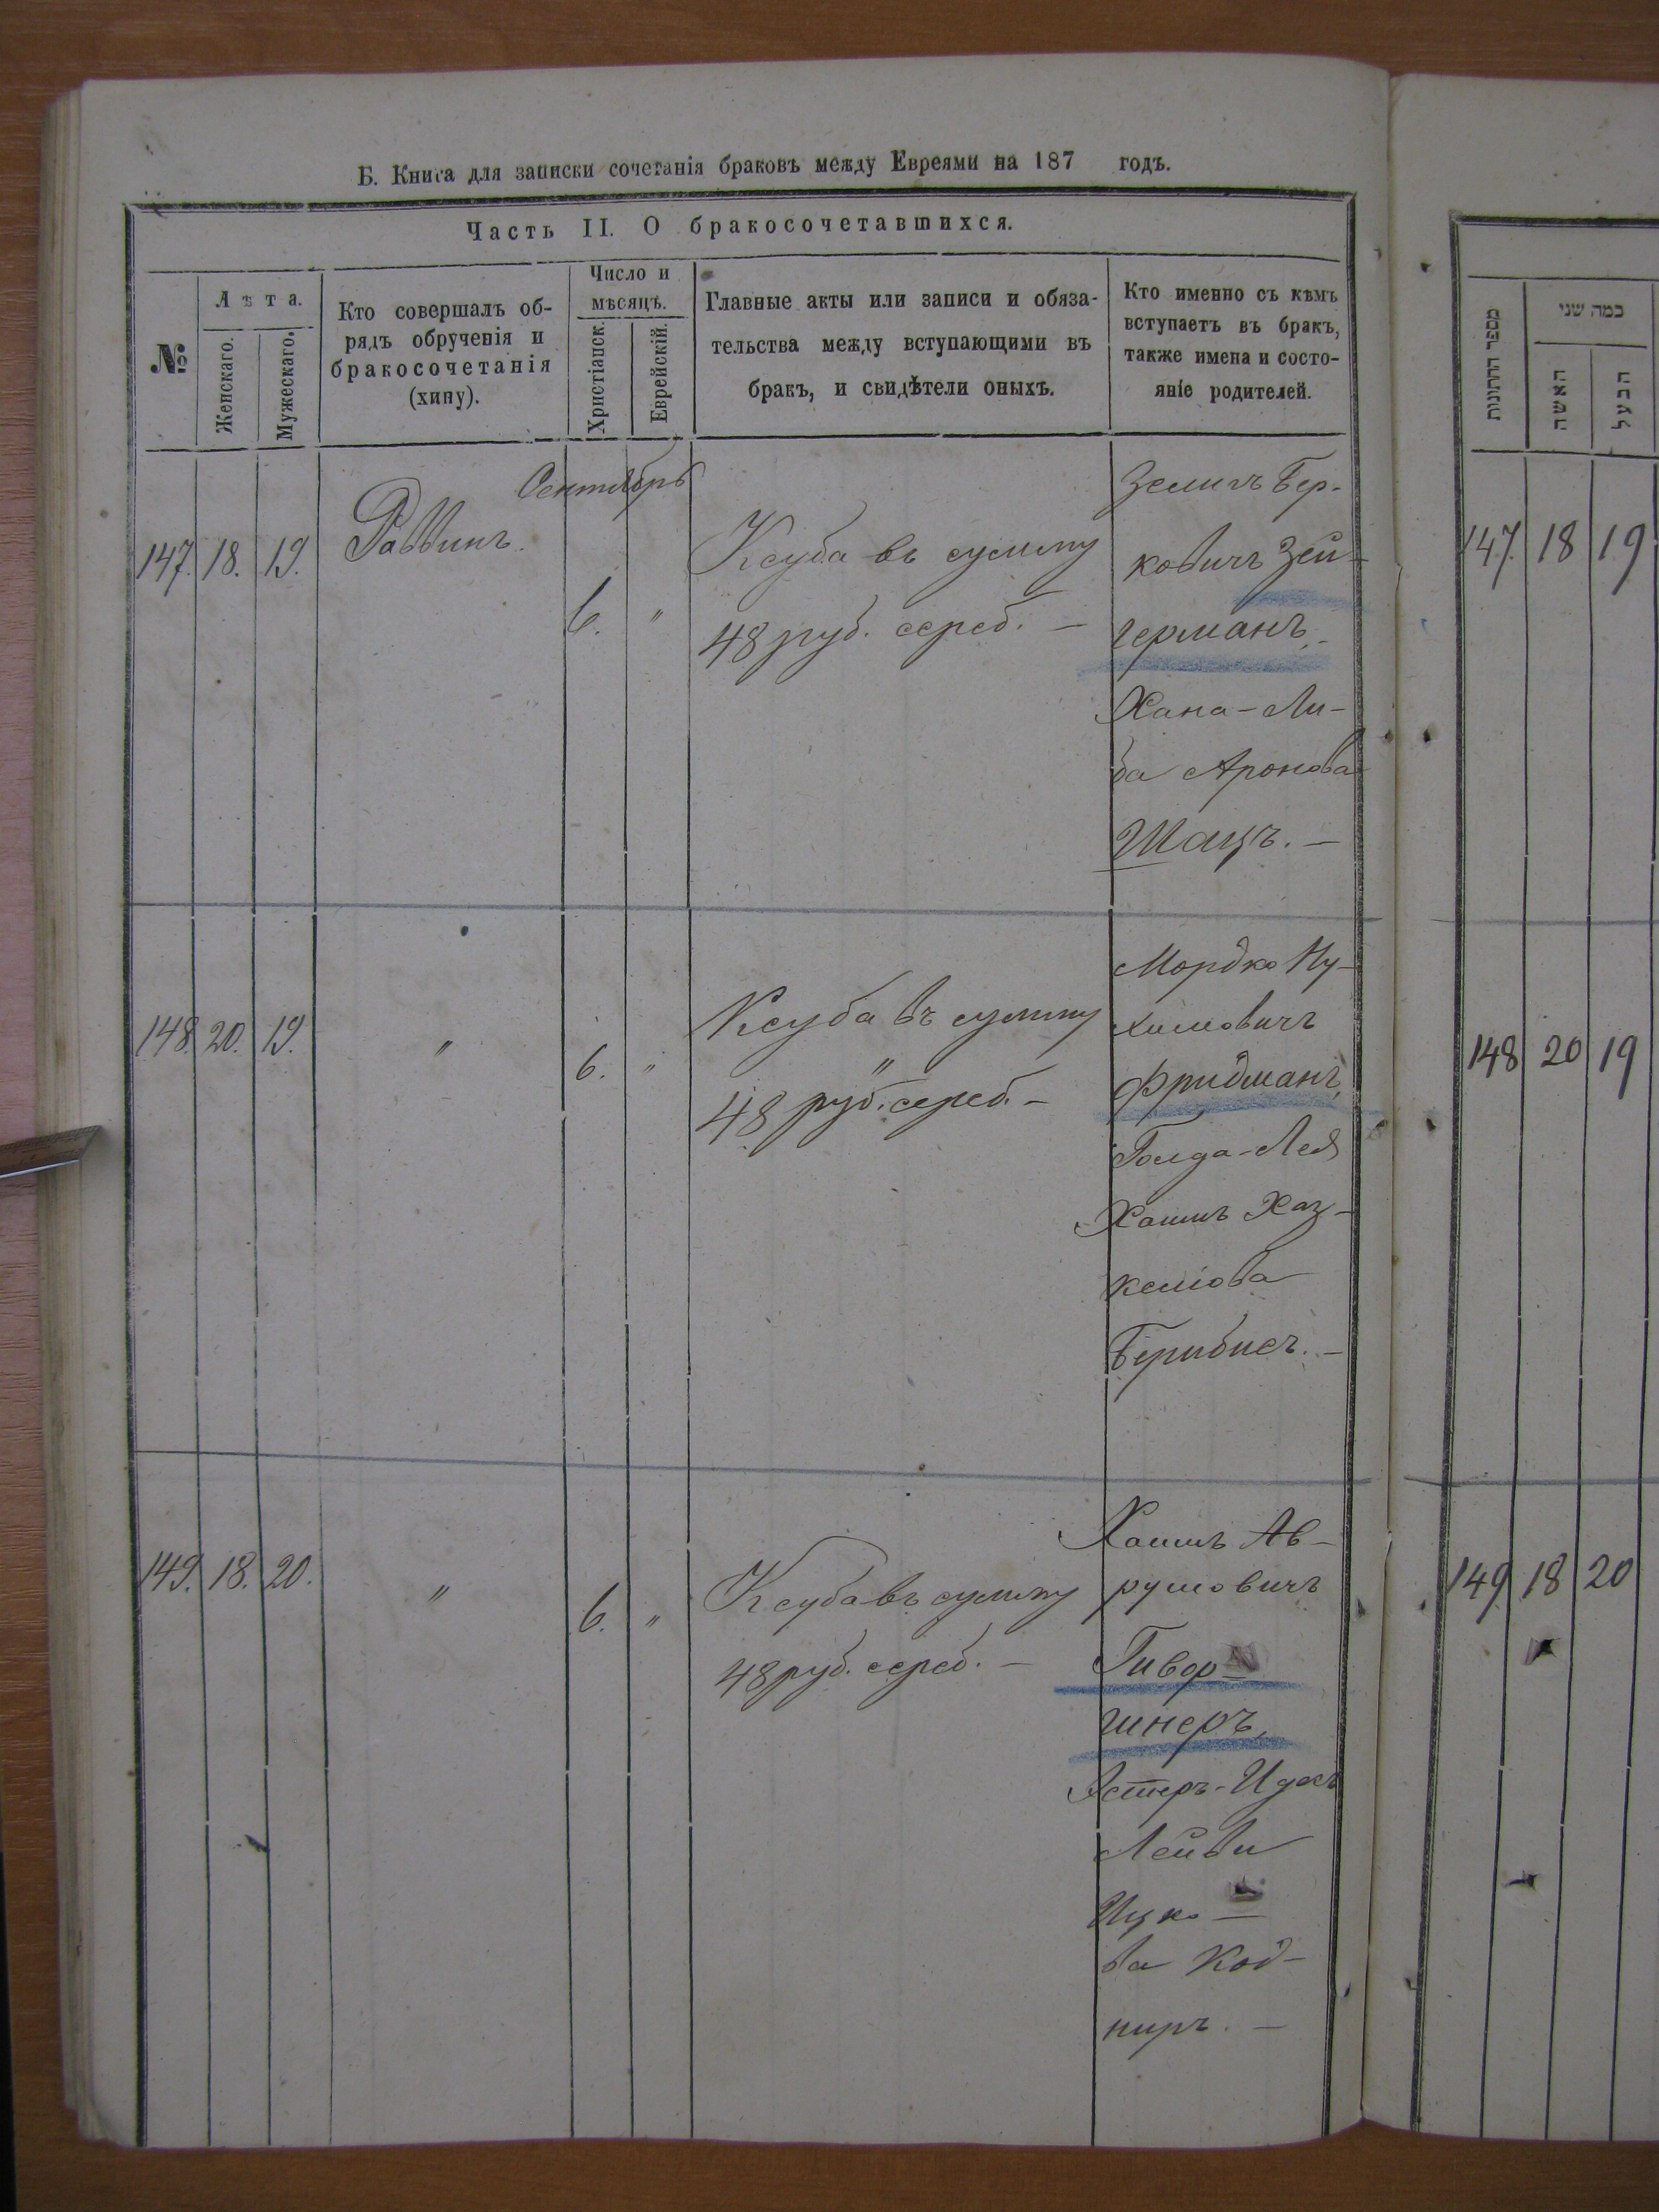 Б. Книга для записки сочетанія браковъ между Евреями на 187 годъ.
Часть II. О бракосочетавшихся.
№
Лѣта.
Женскаго.
Мужескаго.
Кто совершалъ об-
рядъ обрученія и
бракосочетанія
(хипу).
Число и
мѣсяцъ.
Христіанск.
Еврейскій.
Главные акты или записи и обяза-
тельства между вступающими въ
бракъ, и свидѣтели оныхъ.
Кто именно съ кѣмъ
вступаетъ въ бракъ,
также имена и состо-
яніе родителей.
Сентябрь
147. 18. 19.
Раввинъ
6. "
Ксуба въ сумму
48 руб. сереб. —
Зелигъ Бер-
ковичъ Зей-
германъ,
Хана-Ли-
ба Аронова
Шацъ. —
148. 20. 19.
"
6. "
Ксуба въ сумму
"
48 руб. сереб. —
Мордко Ну-
химовичъ
Фридманъ,
Голда-Лея
Хаимъ Хаз-
келіова
149. 18. 20.
"
6. "
Ксуба въ сумму
48 руб. сереб. —
Хаимъ Ав-
румовичъ
Гивор-
Эстеръ-Идесъ
Лейви
Ицко-
ва Код-
ниръ. —
מספר החתונות
כמה שני
האשה
הבעל
147. 18 19
148 20 19
149 18 20